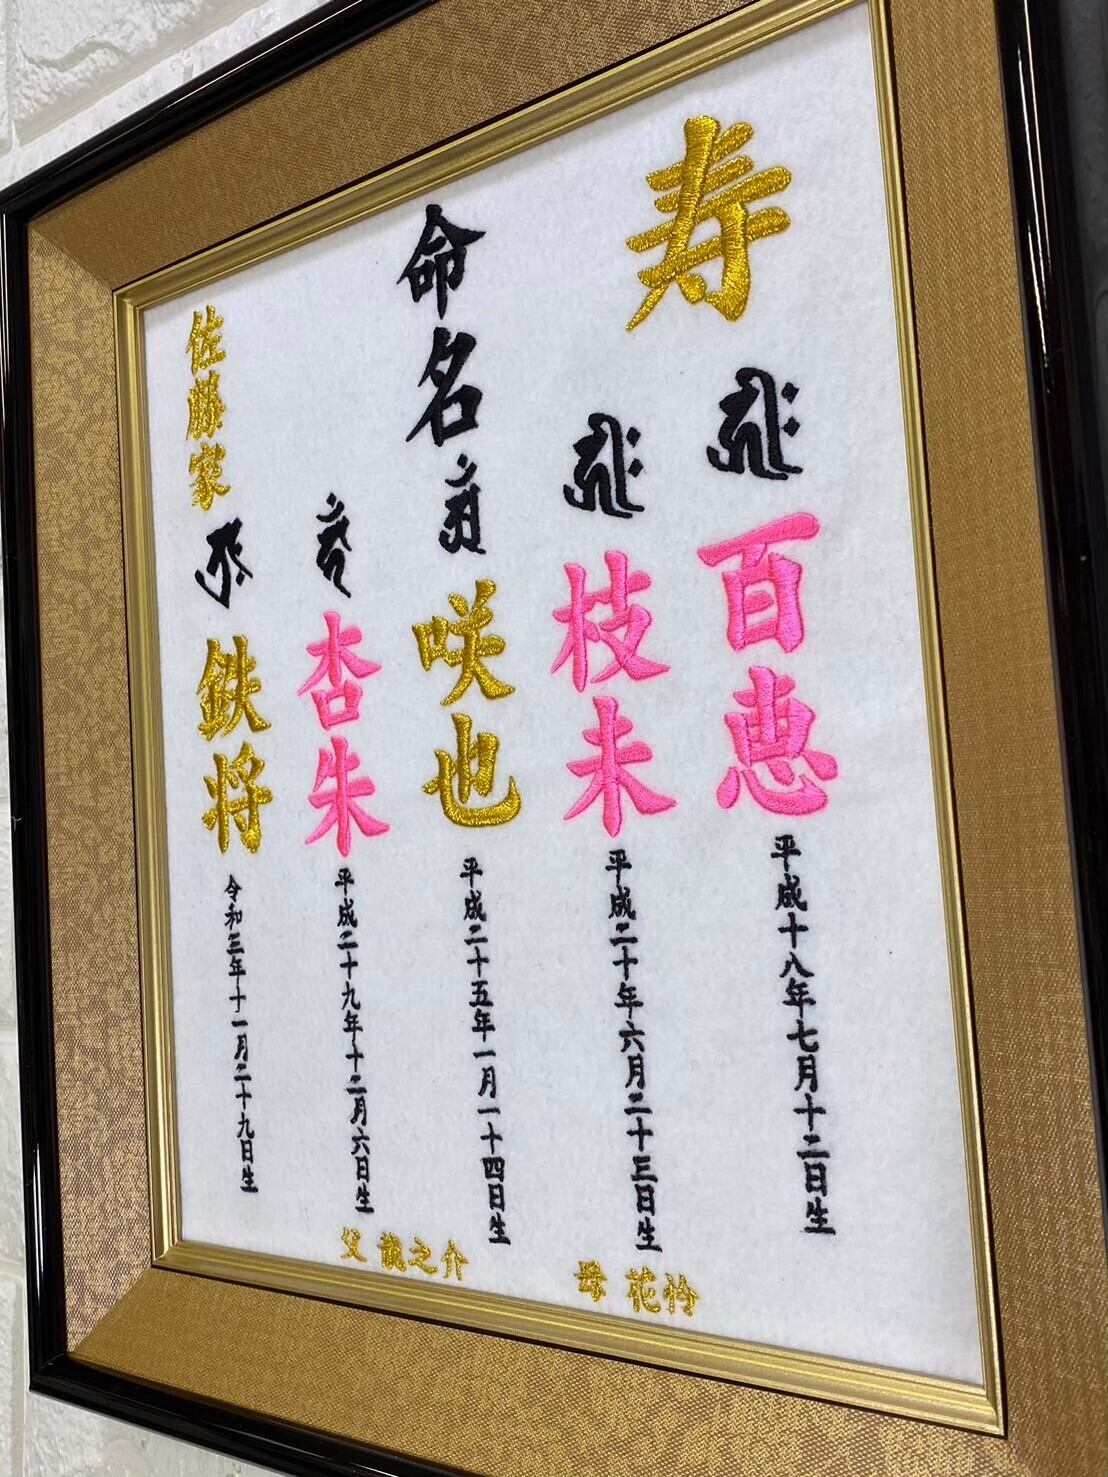 寿
百恵
平成十八年七月十二日生
枝未
平成二十年六月二十三日生
命名
咲也
平成二十五年一月一十四日生
杏朱
平成二十九年十二月六日生
佐藤家
鉄将
令和三年十一月二十九日生
父 龍之介
母 花怜